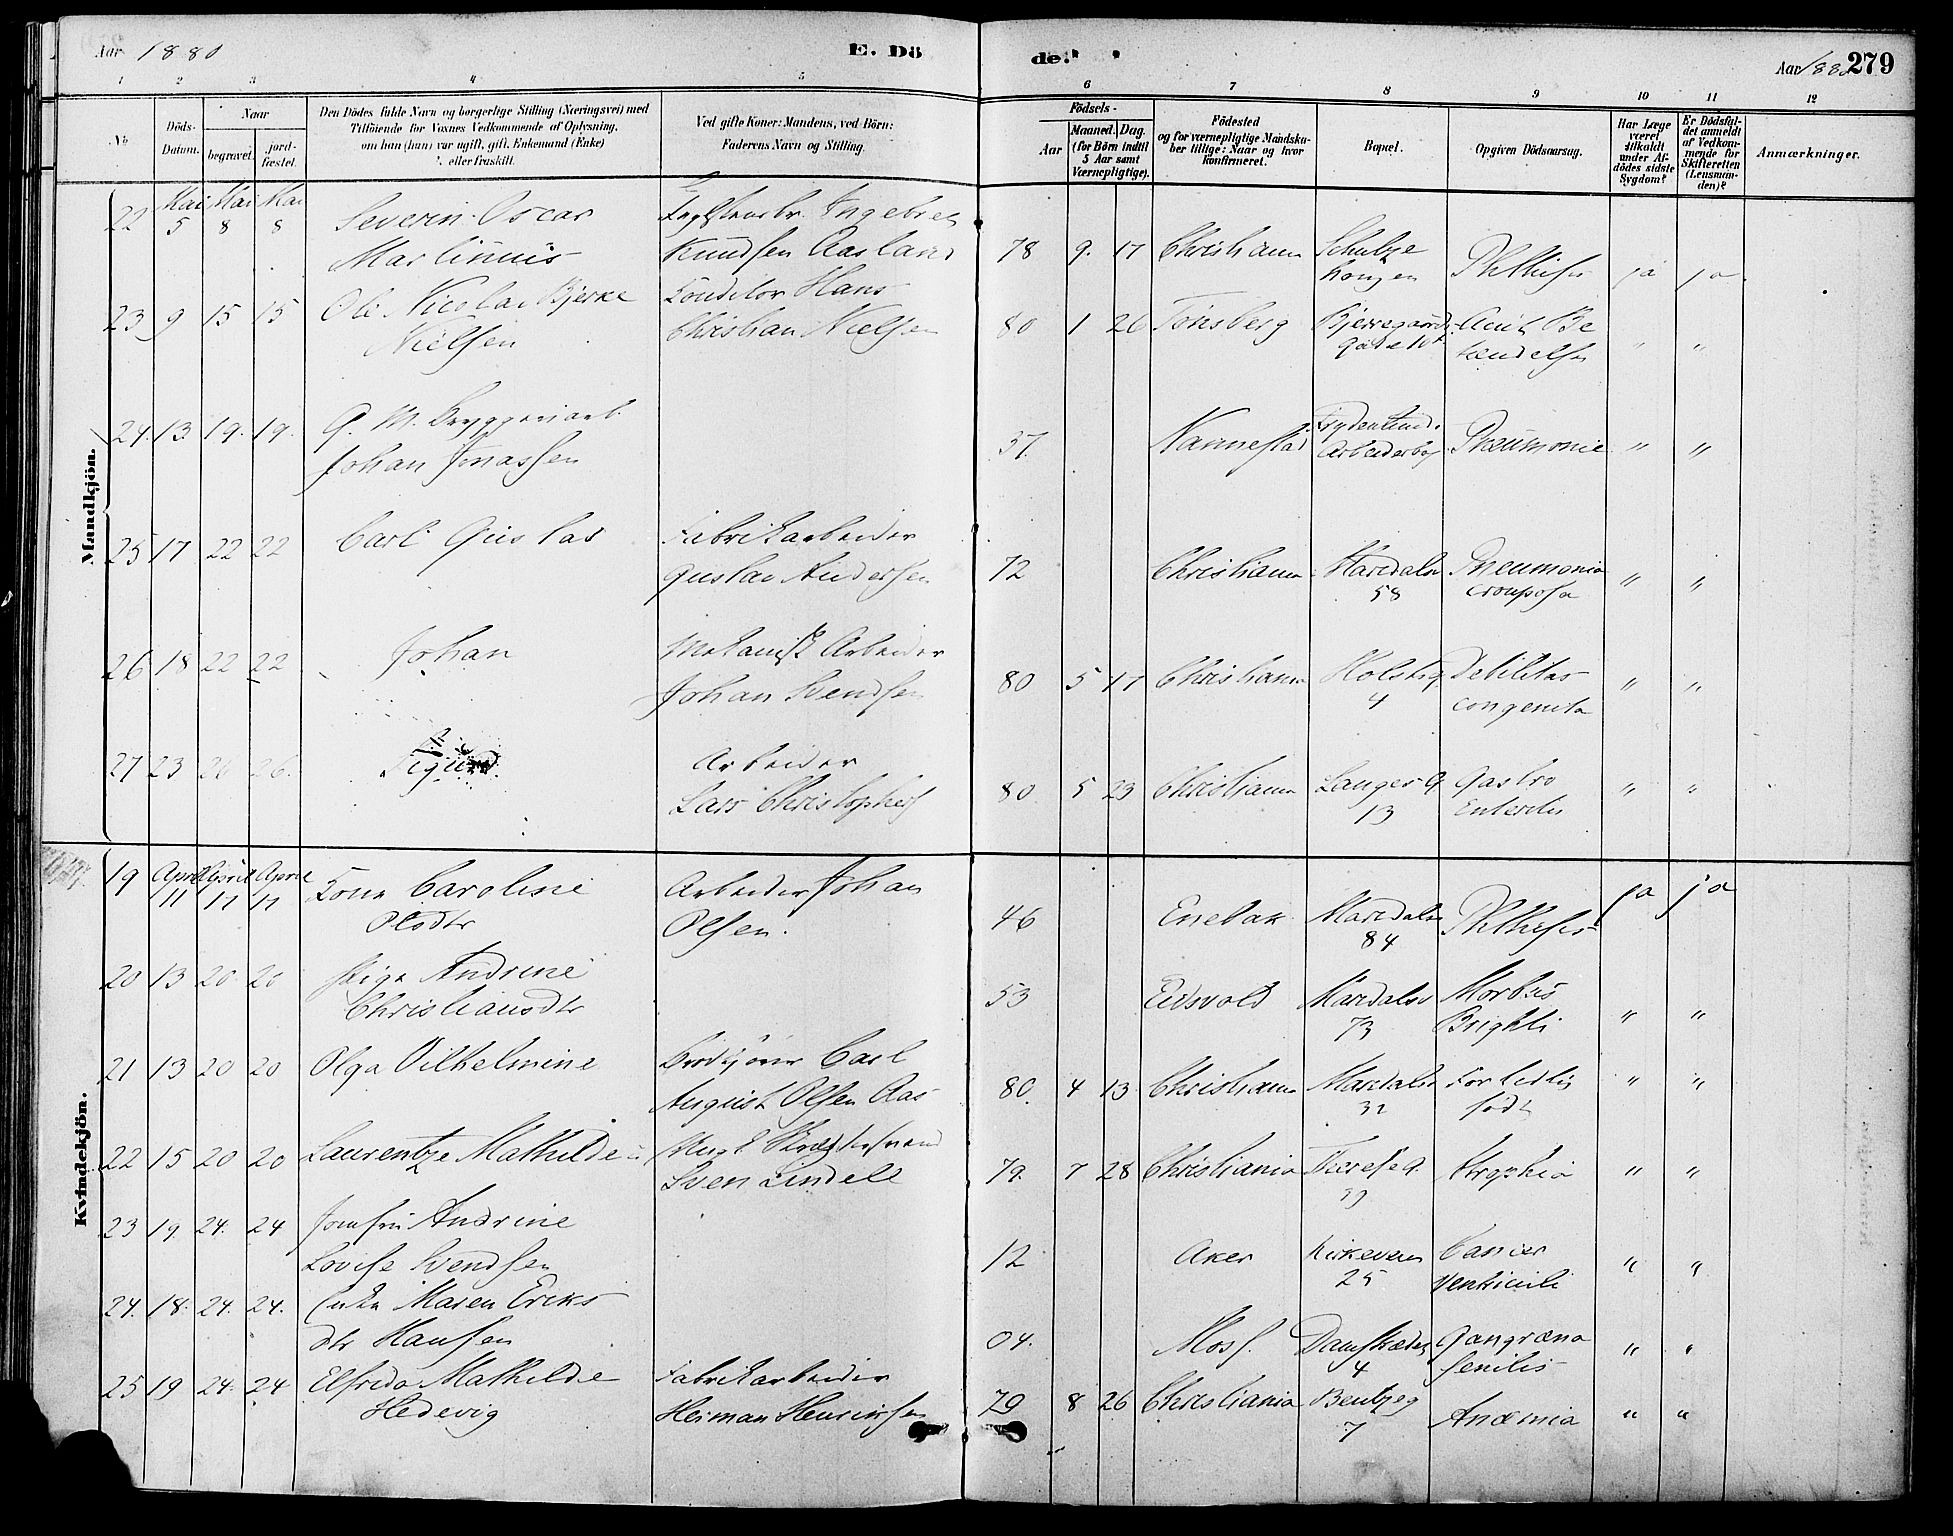 Aar 1880
E. Dö
de.
Aar 1880
279
1 2 3 4 5 6 7 8 9 10 11 12
No
Döds-Datum.
Naar
begravet.
jordfæstet.
Den Dödes fulde Navn og borgerlige Stilling (Næringsvei) med
Tilföiende for Voxnes Vedkommende af Oplysning,
om han (hun) var ugift, gift, Enkemand (Enke)
eller fraskilt.
Ved gifte Koner: Mandens, ved Börn:
Faderens Navn og Stilling.
Födsels-
Aar
Maaned. Dag.
(for Börn indtil
5 Aar samt
Værnepligtige).
Födested
og for værnepligtige Mandska-
ber tillige: Naar og hvor
konfirmeret.
Bopæl.
Opgiven Dödsaarsag.
Har Læge
været
tilkaldt
under Af-
dödes sidste
Sygdom?
Er Dödsfal-
det anmeldt
af Vedkom-
mende for
Skifteretten
(Lensman-
den)?
Anmærkninger.
Mandkjön.
22 Mai 5 Mai 8 Mai 8 Severin Oscar
Martinius
Ingebret
Knudsen Aasland
78 9. 17 Christiania Schultze
Phthisis ja ja
23 9 15 15 Ole Nicolai Bjerke
Nielsen
Konditor Hans
Christian Nielsen
80 1 26 Tönsberg Bjerregaards
gade 10
Acut Be
tændelse " "
24. 13. 19. 19. G. M. Bryggeriarb.
Johan Jonassen
37. Nannestad
Arbeiderbol
Pneumonie " "
25 17 22 22 Carl Gustav
Fabrikarbeider
Gustav Andersen
72 Christiania Maridalsv
58
Pneumonia
crouposa " "
26 18 22 22 Johan
Mekanisk Arbeider
Johan Svendsen
80 5 17 Christiania Holstg
4
Debilitas
congenita " "
27 23 26 26. Sigurd
Arbeider
Lars Christophers
80 5 23 Christiania Langes G
13
Gastro
Enteritis " "
Kvindekjön.
19 April 11 April 17 April 17 Kone Caroline
Olsdtr
Arbeider Johan
Olsen.
46 Enebak Maridalsv
84
Phthisis ja ja
20 13 20 20 Pige Andrine
Christiansdtr
53 Eidsvold Maridalsv
73
Morbus
Brightii " "
21 13 20 20 Olga Vilhelmine
Carl
August Olsen Aas
80. 4 13 Christiania Maridalsv
32
For tidlig
födt " "
22 15 20 20 Laurentze Mathilde
Sven Lindell
79. 7 28 Christiania Therese G.
39
" "
23 19 24. 24 Jomfru Andrine
Lovise Svendsen
12 Aker Kirkeveien
25
Cancer
Ventriculi " "
24. 18. 24. 24. Enke Maren Eriks
dtr Hansen
04. Moss.
4
Gangræna
senilis " "
25 19 24. 24 Elfrida Mathilde
Hedevig
Fabrikarbeider
Herman Henriksen
79 8 26 Christiania Bentzeg
7
Anæmia " "